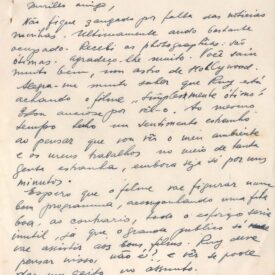 Murilo amigo,
Não fique zangado por falta das notícias
minhas. Ultimamente ando bastante
ocupado. Recebi as photographias. São
ótimas. Agradeço-lhe muito. Você saiu
muito bem, um astro de Hollywood.
Alegra-me muito saber que Ruy está
achando o filme "simplesmente ótimo".
Estou ansioso por vê-lo. Ao mesmo
tempo tenho um sentimento estranho
ao pensar que vou vêr o meu ambiente
e os meus trabalhos no meio de tanta
gente estranha, embora seja só por uns
minutos.
Espero que o filme vae figurar num
bom programma, acompanhando uma fita
boa, ao contrario, todo o esforço seria
inutil, já que o grande publico só
vae assistir aos bons films. Ruy deve
pensar nisso, não é? e vêr se pode
dar um geito no assunto.